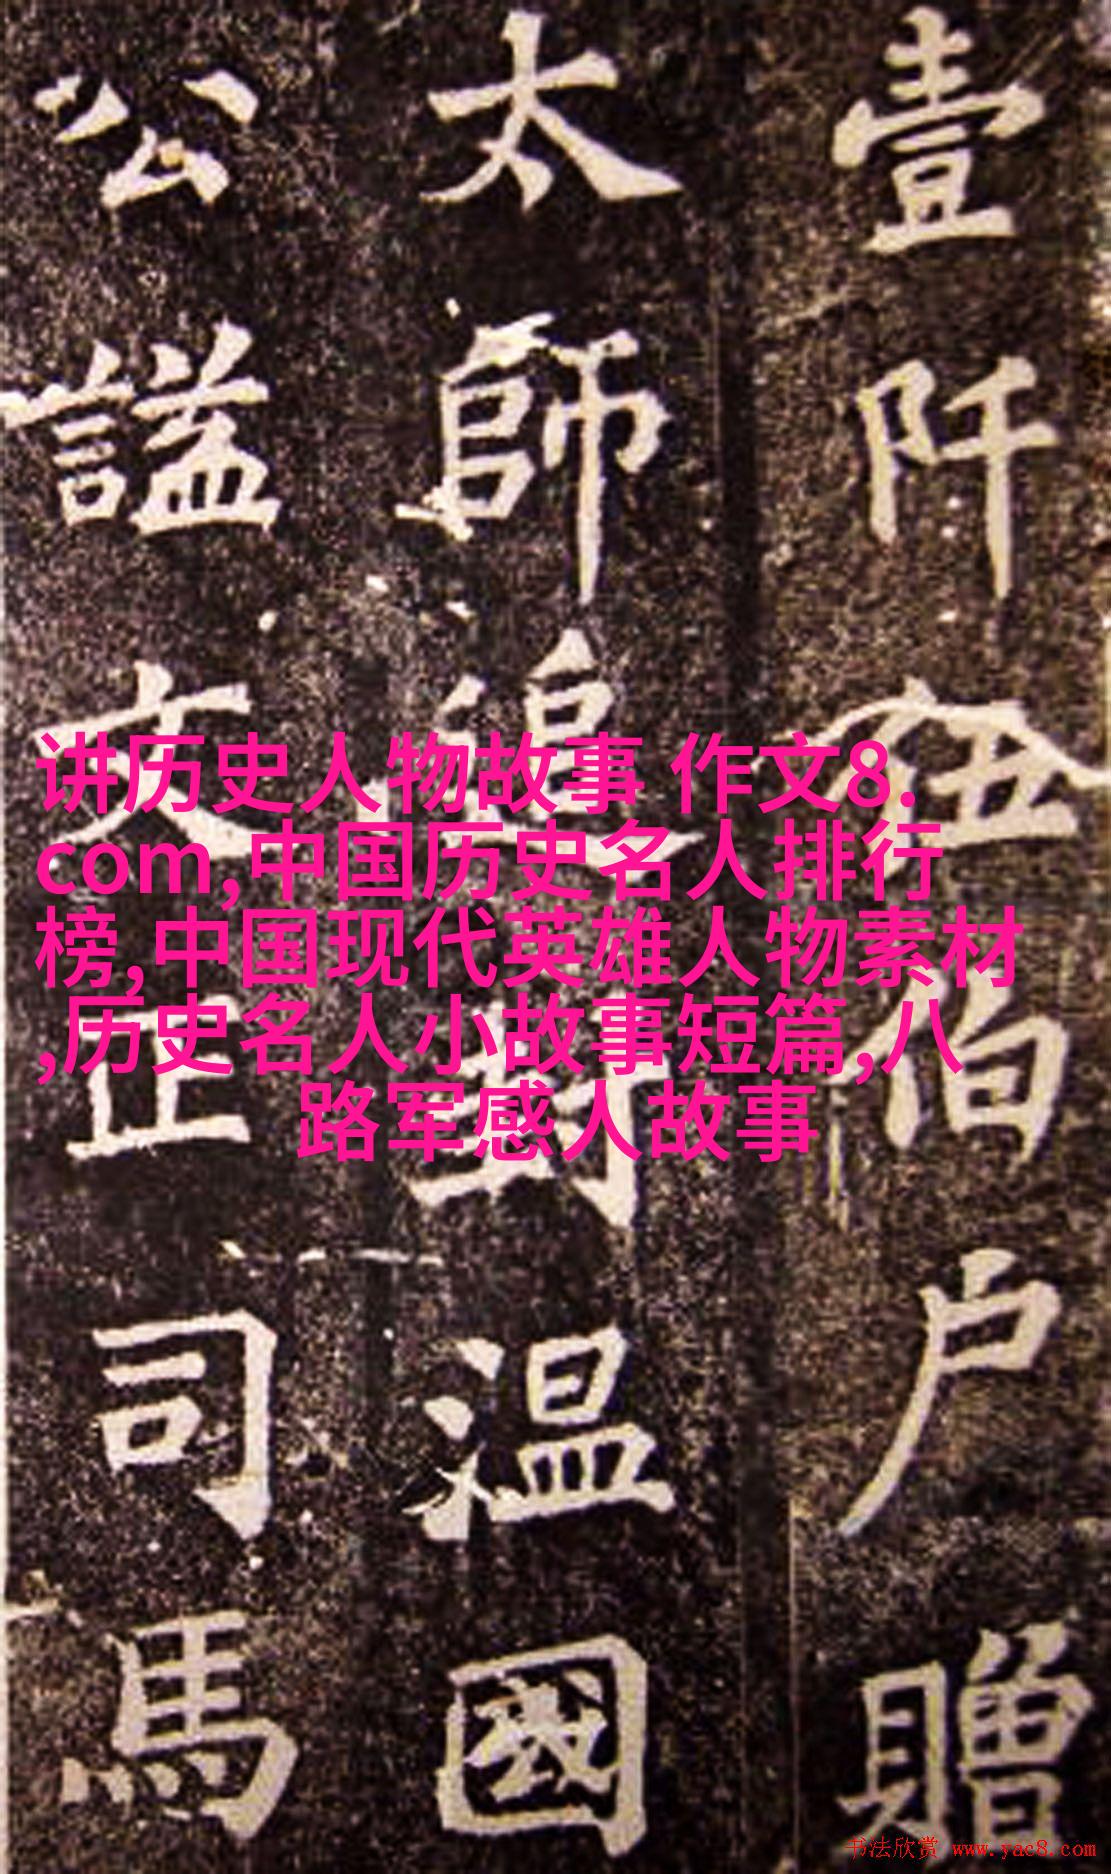 壹阡伍伯户贈
太師追封温國
公謚文正司馬
讲历史人物故事 作文8.
com,中国历史名人排行
榜,中国现代英雄人物素材
,历史名人小故事短篇,八
路军感人故事
书法欣赏 www.yac8.com